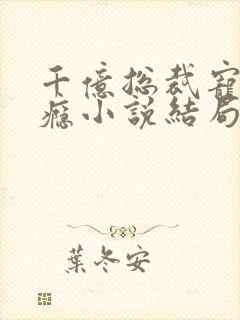 千億總裁寵
癮小說結局
葉冬安